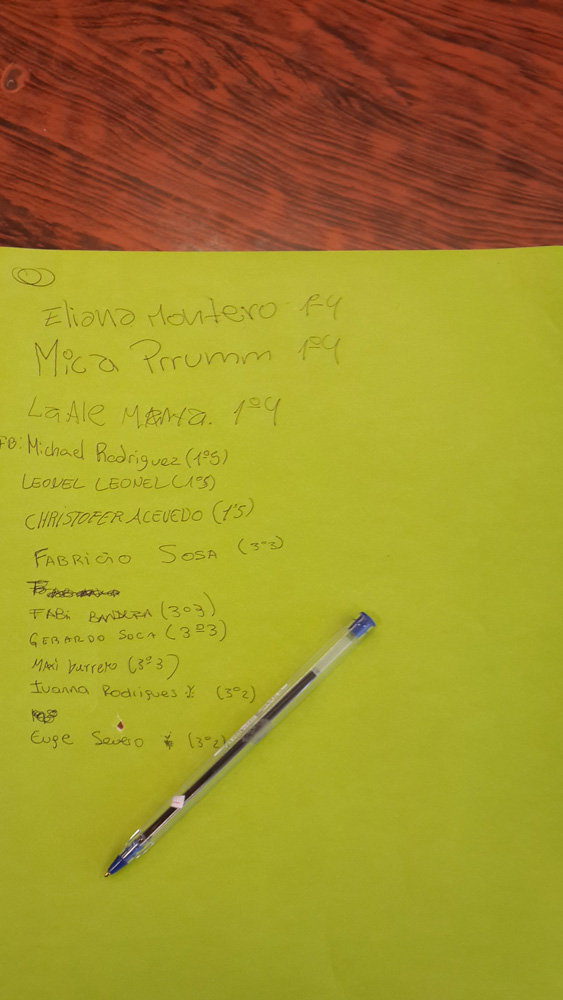 Eliana Montero 1º4
Mica Prrumm 1º4
La Ale 1º4
FB: Michael Rodriguez (1º5)
LEONEL LEONEL (1º5)
CHRISTOFER ACEVEDO (1º5)
FABRICIO SOSA (3º3)
FABi BANDERA (3º3)
GERARDO SOCA (3º3)
MAXI burrero (3º3)
Ivanna Rodrigues (3º2)
Euge Severo (3º2)